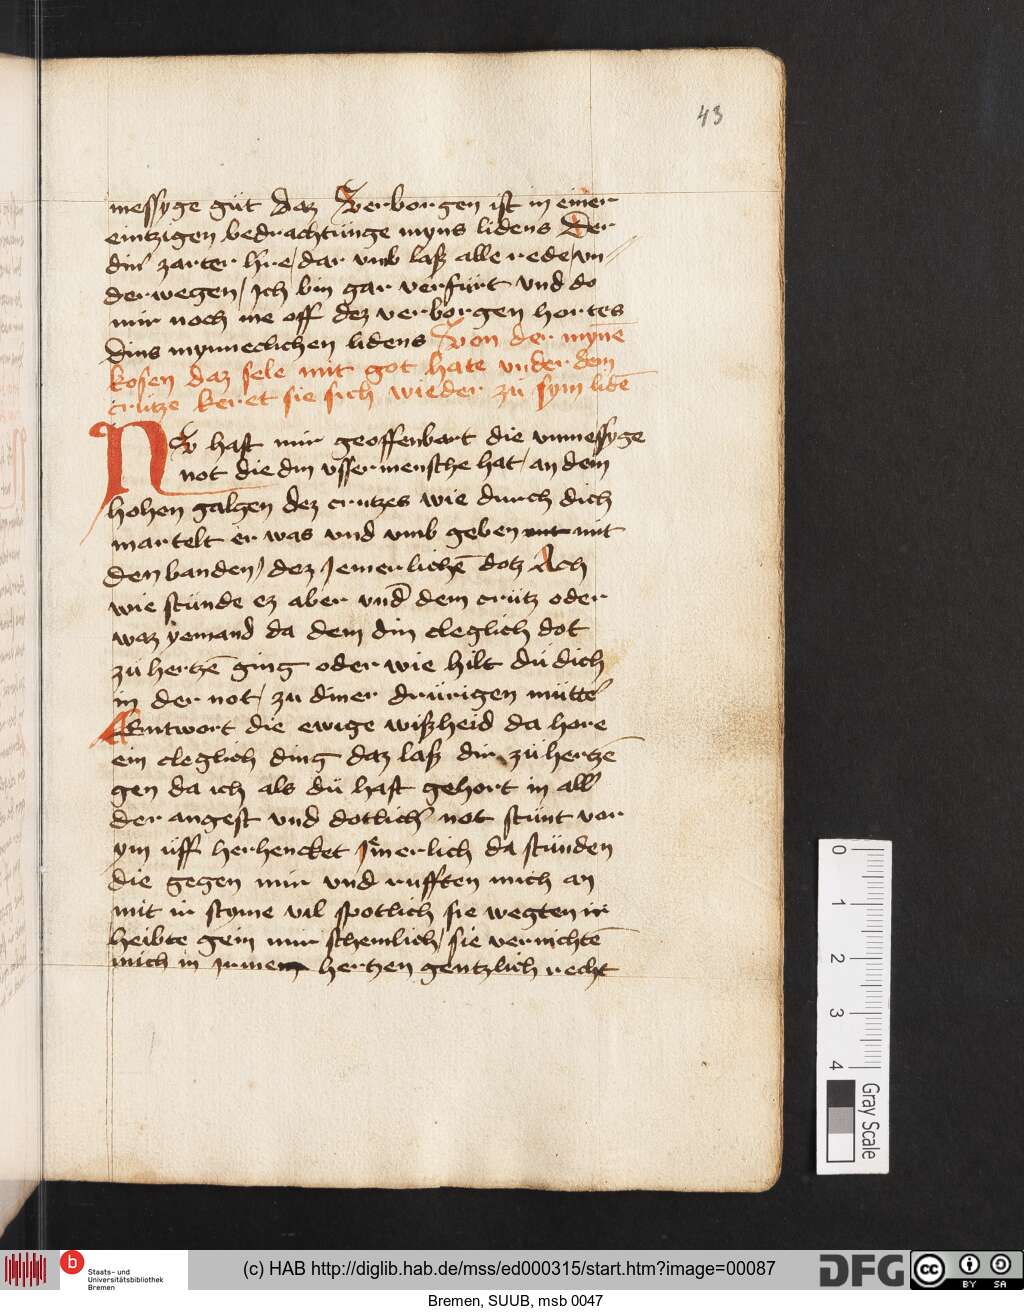 43
messyge güt daz verborgen ist in einer
eintzigen bedrachtünge myns lidens Der
din zarter hre / dar vmb laß alle rede / vn
derwegen / Jch bin gar verfürt vnd do
mir noch me off dez verborgen hortes
dins mynneclichen lidens Von der mÿnē
kosen daz sele mit got hate vnder dem
crütze keret sie sich wieder zü sym lidē
Nv hast mir geoffenbart die vnmessyge
not die din vsser mensche hat / an dem
hohen galgen dez crutzes wie durch dich
martelt er was vnd vmb geben mit
den banden / dez Jemerlichē dotz Ach
wie stünde ez aber vnd dem crütz oder
waz yemand da dem din cleglich dot
zü hertzē ging oder wie hilt dü dich
in der not / zu diner drürigen mütter
Antwort die ewige wißheid da hore
ein cleglich ding daz laß dir zü hertzē
gen da ich als dü hast gehort in all
der angest vnd dotlich not stünt vor
ym üff herhencket Jemerlich da stünden
die gegen mir vnd rufften mich an
mit ir styme vil spotlich sie wegten ir
heibte gein mir schemlich / sie vernichtē
mich in irme hertzen gentzlich recht
0
1
2
3
4
Gray Scale
b
Staats- und
Universitätsbibliothek
Bremen
(c) HAB http://diglib.hab.de/mss/ed000315/start.htm?image=00087
DFG
cc
BY
SA
Bremen, SUUB, msb 0047